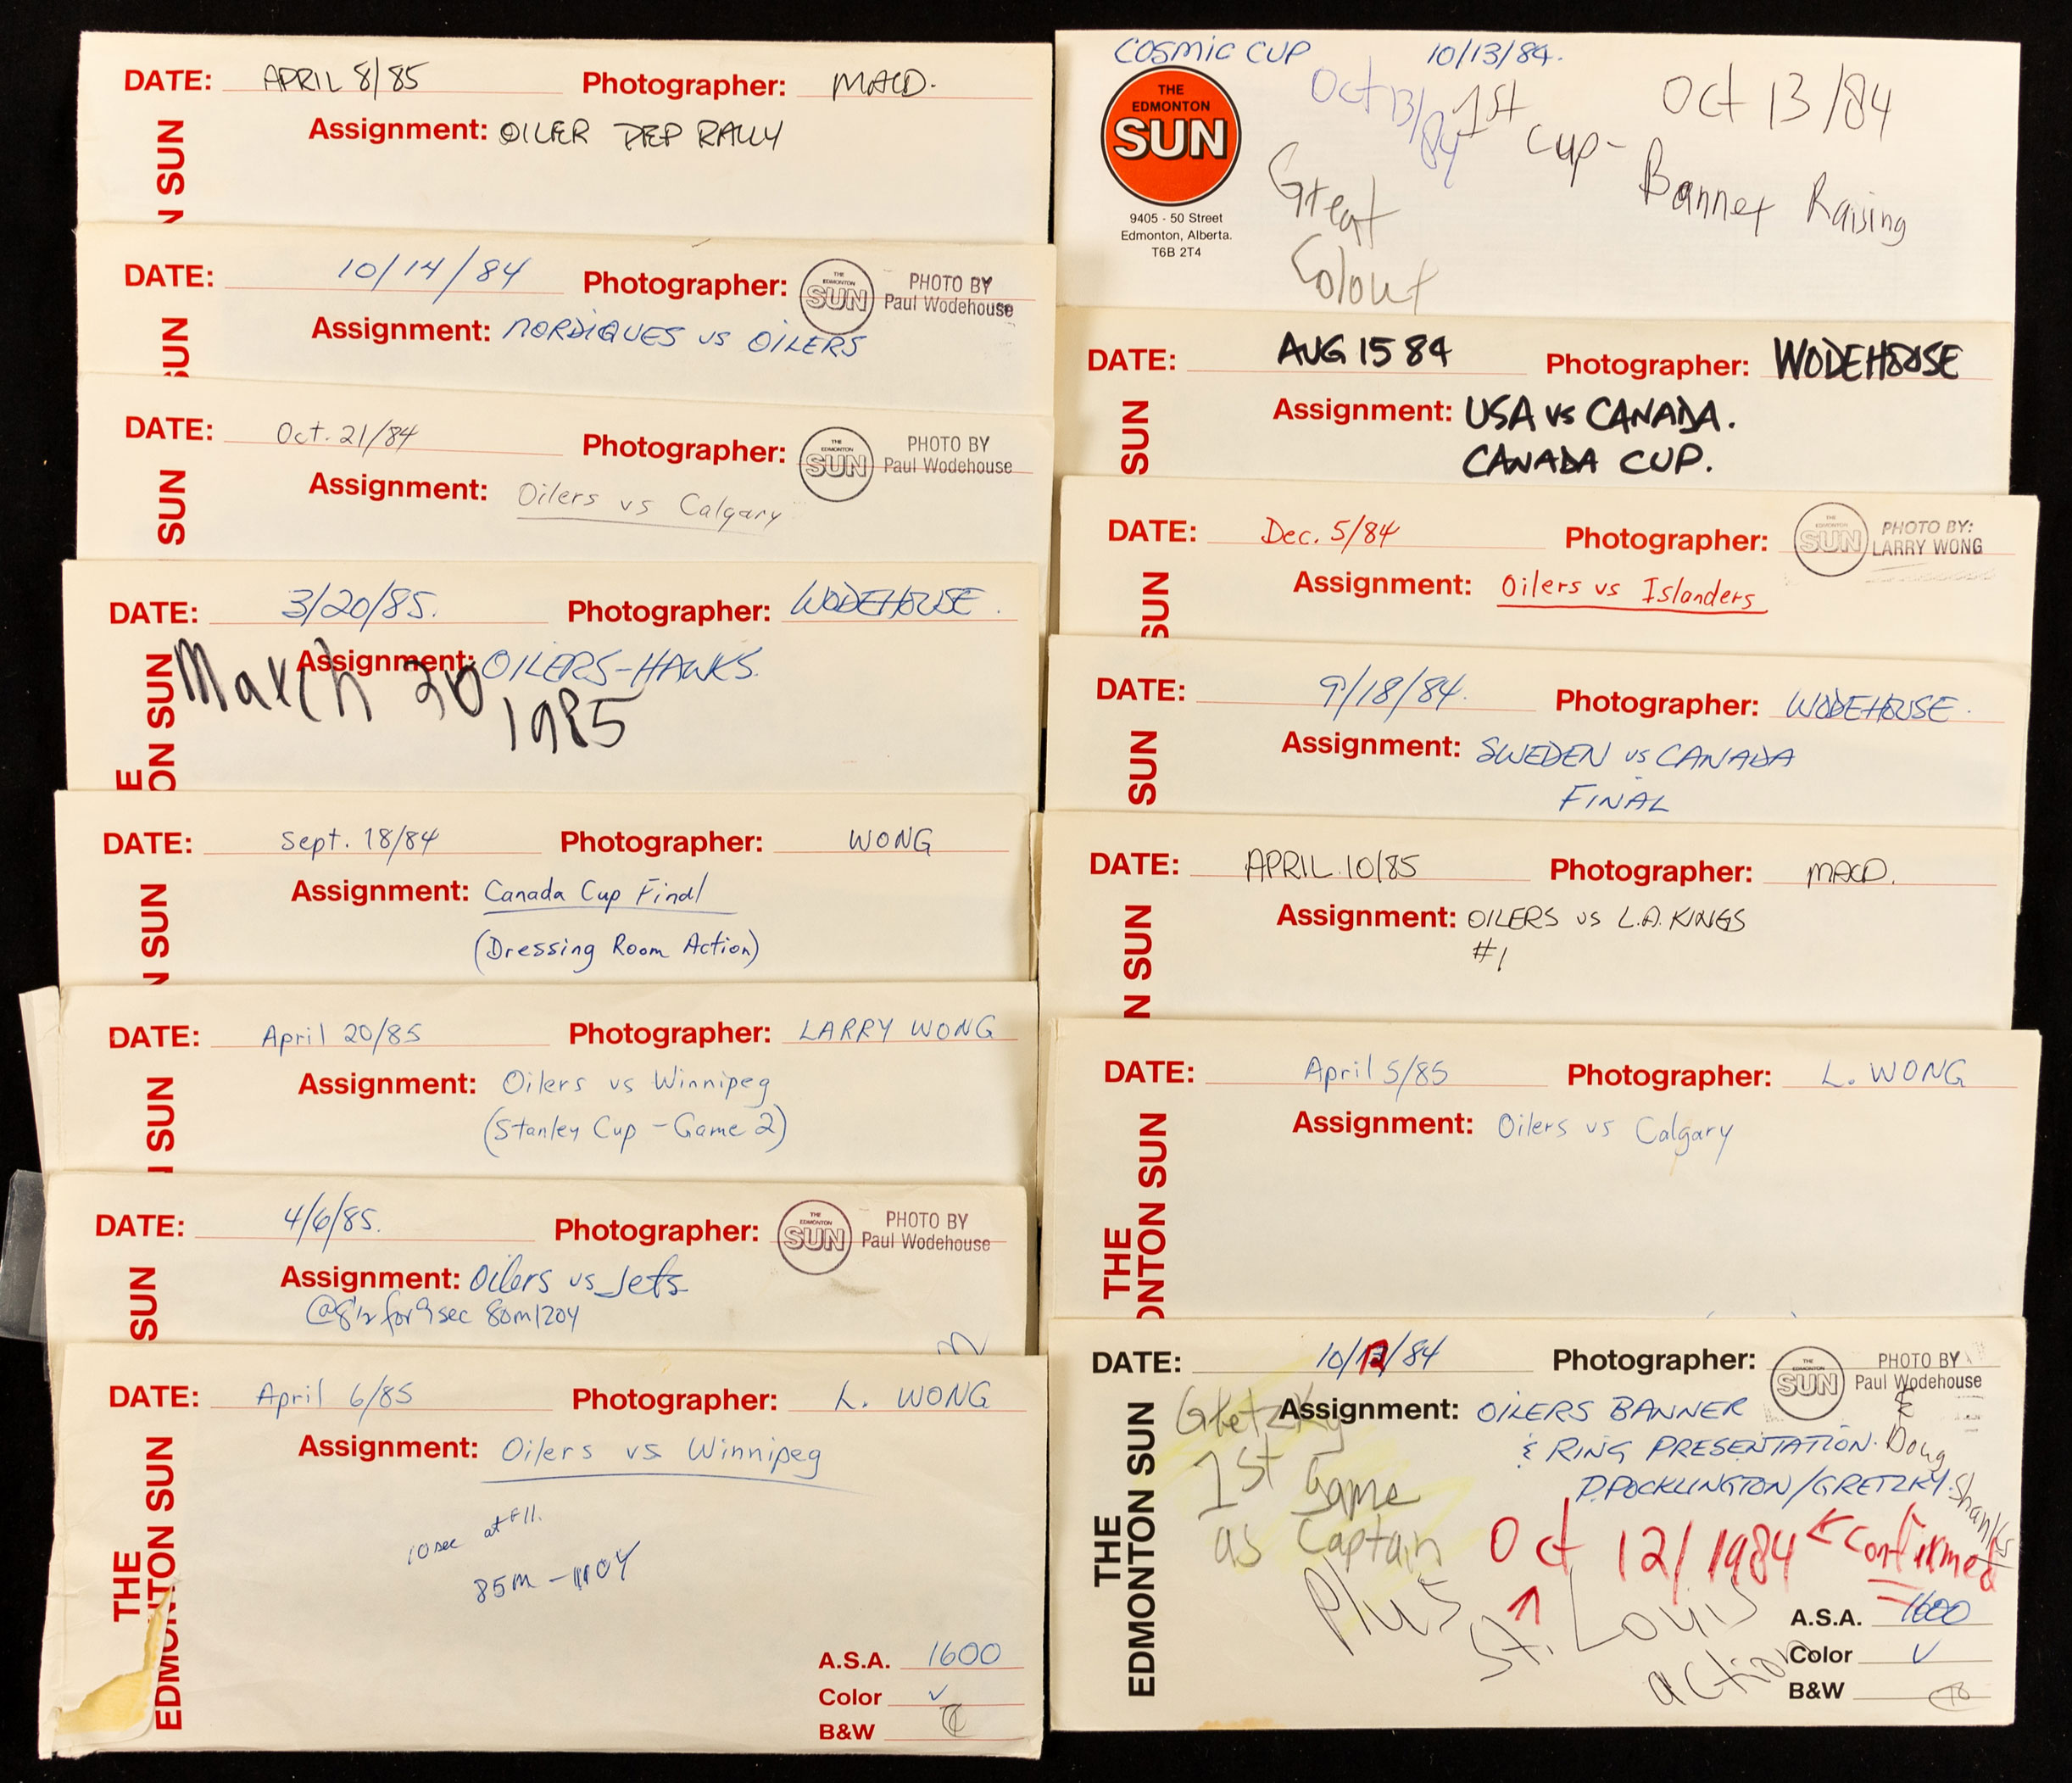 DATE: APRIL 8/85 Photographer: MACD.
Assignment: OILER DEP RALLY
N SUN
DATE: 10/14/84 Photographer: THE EDMONTON SUN PHOTO BY
Paul Wodehouse
Assignment: NORDIQUES vs OILERS
SUN
DATE: Oct. 21/84 Photographer: THE EDMONTON SUN PHOTO BY
Paul Wodehouse
Assignment: Oilers vs Calgary
SUN
DATE: 3/20/85. Photographer: WODEHOUSE.
Assignment: OILERS-HAWKS.
March 20
1985
E
ON SUN
DATE: Sept. 18/84 Photographer: WONG
Assignment: Canada Cup Final
(Dressing Room Action)
N SUN
DATE: April 20/85 Photographer: LARRY WONG
Assignment: Oilers vs Winnipeg
(Stanley Cup - Game 2)
SUN
DATE: 4/6/85. Photographer: THE EDMONTON SUN PHOTO BY
Paul Wodehouse
Assignment: Oilers vs Jets
@8½ for 9 sec 80m120y
SUN
DATE: April 6/85 Photographer: L. WONG
Assignment: Oilers vs Winnipeg
10 sec at f11.
85M - 110Y
THE
EDMONTON SUN
A.S.A. 1600
Color ✓
B&W
COSMIC CUP 10/13/84.
THE
EDMONTON
SUN
9405 - 50 Street
Edmonton, Alberta.
T6B 2T4
Oct 13/84
1st Cup-
Oct 13/84
Banner Raising
Great
Colour
DATE: AUG 15 84 Photographer: WODEHOUSE
Assignment: USA vs CANADA.
CANADA CUP.
SUN
DATE: Dec. 5/84 Photographer: THE EDMONTON SUN PHOTO BY:
LARRY WONG
Assignment: Oilers vs Islanders
SUN
DATE: 9/18/84. Photographer: WODEHOUSE.
Assignment: SWEDEN vs CANADA
FINAL
SUN
DATE: APRIL.10/85 Photographer: MACD.
Assignment: OILERS vs L.A. KINGS
#1
N SUN
DATE: April 5/85 Photographer: L. WONG
Assignment: Oilers vs Calgary
THE
ONTON SUN
DATE: 10/12/84 Photographer: THE EDMONTON SUN PHOTO BY
Paul Wodehouse
& Doug Shanks
Assignment: OILERS BANNER
& RING PRESENTATION.
P.POCKLINGTON/GRETZKY.
Gretzky
1st Game
as Captain
Oct 12/1984 ← confirmed
↑
Plus St. Louis
action
THE
EDMONTON SUN
A.S.A. 1600
Color ✓
B&W